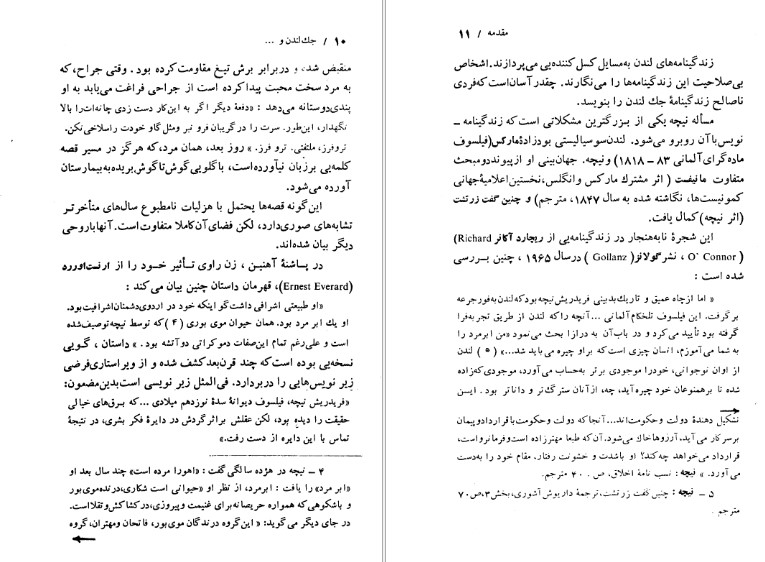 ۱۰ / جك لندن و ...
منقبض شد، و دربرابر برش تیغ مقاومت کرده بود. وقتی جراح، که
به مرد سخت محبت پیدا کرده است از جراحی فراغت می‌یابد به او
پندی‌دوستانه می‌دهد : «دفعهٔ دیگر اگر به این‌کار دست زدی چانه‌ات‌را بالا
نگهدار، این‌طور. سرت را در گریبان فرو نبر ومثل گاو خودت راسلاخی‌نکن.
تروفرز، ملتفتی. ترو فرز. » روز بعد، همان مرد، که هرگز در مسیر قصه
کلمه‌یی برزبان نیاورده‌است، باگلویی‌گوش‌تاگوش‌بریده‌به‌بیمارستان
آورده می‌شود.
این‌گونه قصه‌ها یحتمل با هزلیات نامطبوع سال‌های متأخرتر
تشابه‌های صوری‌دارد، لکن فضای آن‌کاملا متفاوت‌است. آنهاباروحی
دیگر بیان شده‌اند.
در پاشنهٔ آهنین ، زن راوی تأثیر خود را از ارنست‌اوررد
(Ernest Everard)، قهرمان داستان چنین بیان می‌کند :
«او طبیعتی اشرافی داشت‌گو اینکه خود در اردوی‌دشمنان‌اشرافیت‌بود.
او یك ابر مرد بود. همان حیوان موی بوری (۴) که توسط نیچه‌توصیف‌شده
است و علی‌رغم تمام این‌صفات دموکراتی دوآتشه بود. » داستان ، گویی
نسخه‌یی بوده است‌که چند قرن‌بعدکشف شده و از ویراستاری‌فرضی
زیر نویس‌هایی را دربردارد. فی‌المثل زیر نویسی است‌بدین‌مضمون:
«فریدریش نیچه، فیلسوف دیوانهٔ سدهٔ نوزدهم میلادی ...که برق‌های خیالی
حقیقت را دیده بود، لکن عقلش براثرگردش در دایرهٔ فکر بشری، در نتیجهٔ
تماس با این دایره از دست رفت.»
۴ – نیچه در هژده سالگی گفت : «اهورا مرده است» چند سال بعد او
«ابر مرد» را یافت : ابرمرد، از نظر او «حیوانی است شکاری،درنده‌موی‌بور
و باشکوهی که همواره حریصانه‌برای غنیمت وپیروزی،درکشاکش‌وتقلااست.
در جای دیگر می‌گوید: «این‌گروه درندگان موی‌بور، فاتحان ومهتران،گروه
مقدمه / ۱۱
زندگینامه‌های لندن به‌مسایل کسل کننده‌یی می‌پردازند. اشخاص
بی‌صلاحیت این زندگینامه‌ها را می‌نگارند. چقدر آسان‌است که‌فردی
ناصالح زندگینامهٔ جك لندن را بنویسد.
مسأله نیچه یکی از بزرگترین مشکلاتی است‌که زندگینامه –
نویس‌باآن روبرو می‌شود. لندن‌سوسیالیستی بودزادهٔ‌مارکس(فیلسوف
ماده‌گرای‌آلمانی ۸۳ – ۱۸۱۸) و نیچه. جهان‌بینی او ازپیونددومبحث
متفاوت مانیفست ( اثر مشترك مارکس وانگلس،نخستین‌اعلامیهٔ‌جهانی
کمونیست‌ها، نگاشته شده به سال ۱۸۴۷، مترجم) و چنین گفت زرتشت
(اثر نیچه) کمال یافت.
این شجرهٔ نابه‌هنجار در زندگینامه‌یی از ریچارد آکانر Richard)
( O' Connor ، نشرگولانز( Gollanz ) درسال ۱۹۶۵ ، چنین بررسی
شده است :
« اما ازچاه عمیق و تاریك‌بدبینی فریدریش‌نیچه بودکه‌لندن به‌فورجرعه
برگرفت. این فیلسوف تلخکام آلمانی ... آنچه راکه لندن از طریق تجربه‌فرا
گرفته بود تأیید می‌کرد و در باب‌آن به درازا بحث می‌نمود «من ابرمرد را
به شما می‌آموزم. انسان چیزی است‌که براو چیره می‌باید شد...» (۵) لندن
از اوان نوجوانی، خودرا موجودی برتر به‌حساب می‌آورد، موجودی‌که‌زاده
شده تا برهمنوعان خود چیره آید، چه، ازآنان سترگ‌تر و داناتر بود. ایـن
تشکیل دهندهٔ دولت وحکومت‌اند... آنجاکه دولت وحکومت‌باقراردادوپیمان
برسرکار می آید، آرزوهاخاك می‌شود، آن‌که طبعا مهترزاده است‌وفرمانرواست،
قرارداد می‌خواهد چه‌کند؟ او باشدت و خشونت رفتار، مقام خود را به‌دست
می‌آورد. » نیچه : نسب نامهٔ اخلاق، ص . ۴۰ مترجم.
۵ – نیچه : چنین گفت زرتشت، ترجمهٔ داریوش آشوری،بخش۳،ص۷۰
مترجم .